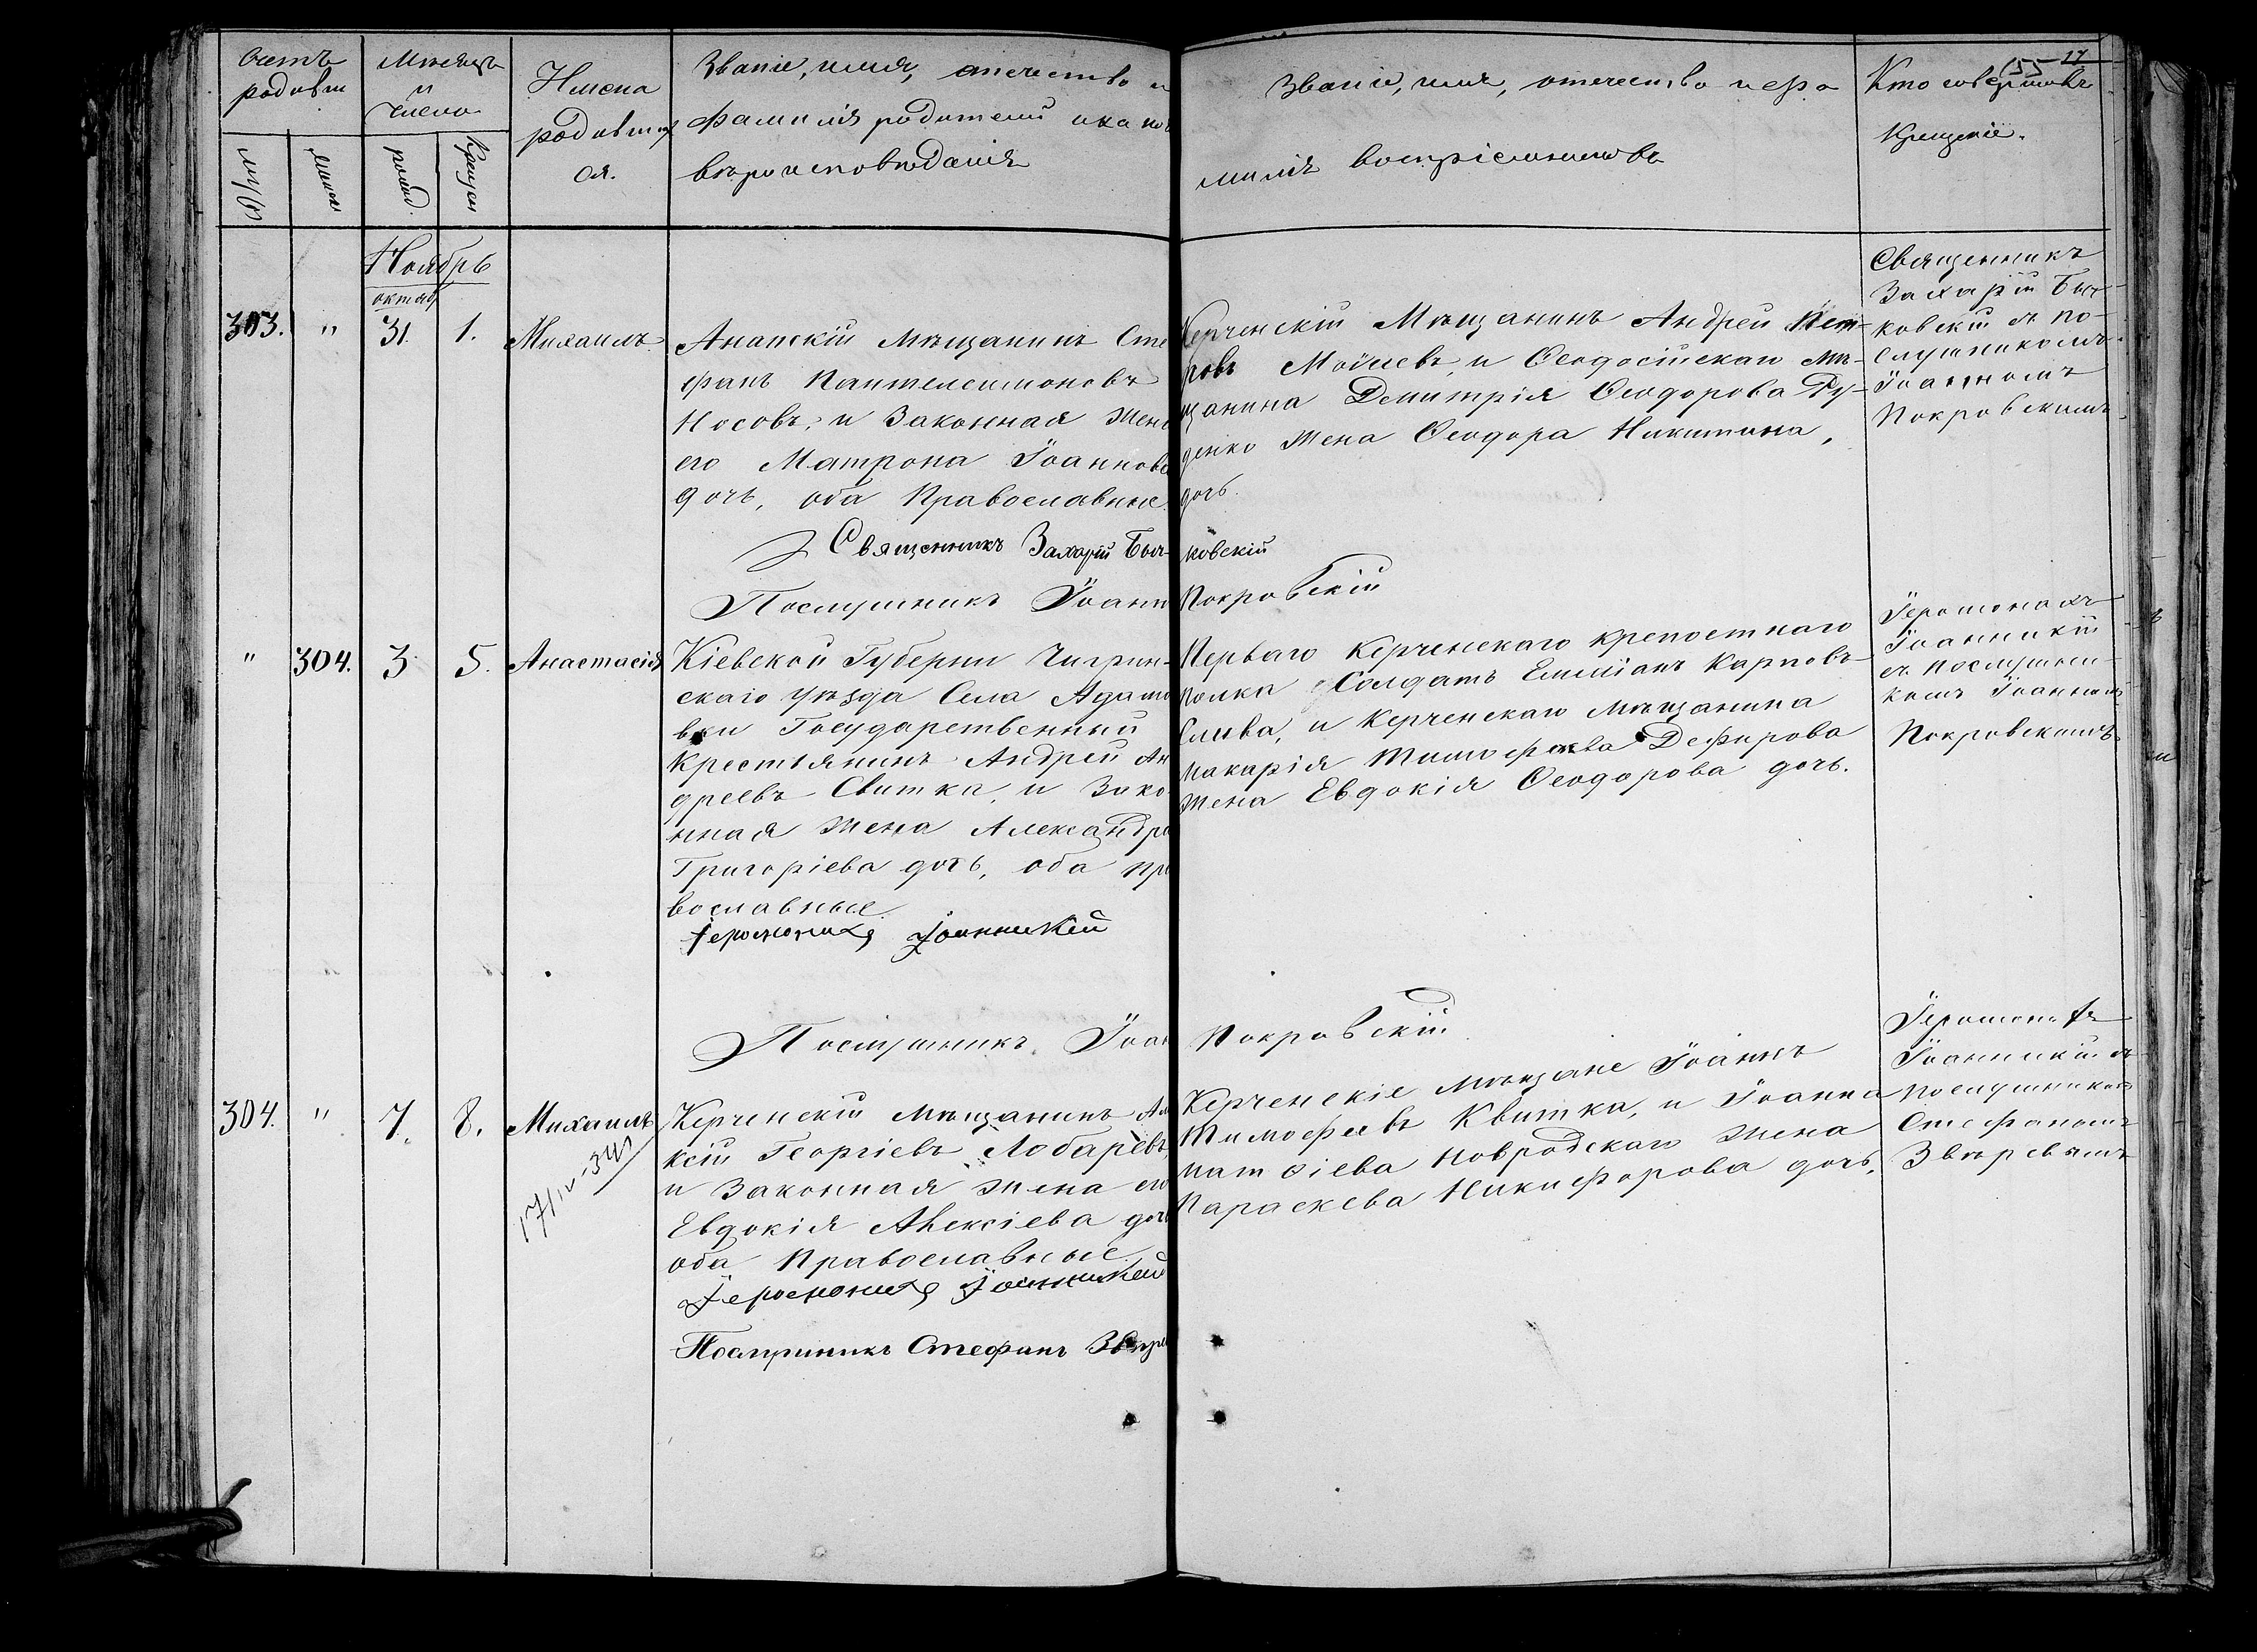 155 27
Счетъ родивш
муж
женск
Мѣсяцъ и число
рожд.
крещен
Имена родивших ся.
Званіе, имя, отечество и
фамилія родителей и како
вѣроисповѣданія
Званіе, имя, отечество и фа
милія воспріемниковъ
Кто совершалъ
крещеніе.
Ноябрь
октяб
303. " 31. 1. Михаилъ.
Анапскій мѣщанинъ Сте
фанъ Пантелеимоновъ
Носовъ, и законная жена
его Матрона Іоаннова
дочь, оба Православные.
Керченскій Мѣщанинъ Андрей Пет-
ровъ Мойсеевъ, и Ѳеодосійскаго мѣ-
щанина Димитрія Ѳеодорова Ру-
денко жена Ѳеодора Никитина,
дочь.
Священникъ
Захарій Быч-
ковскій съ по-
слушникомъ
Іоанномъ
Покровскимъ.
Священникъ Захарій Быч-
ковскій
Послушникъ Іоанн
Покровскій
" 304. 3 5. Анастасія
Кіевской Губерніи Чигрин-
скаго уѣзда Села Адамо
вки Государственный
крестьянинъ Андрей Ан
дреевъ Свитка, и Зако
нная жена Александра
Григоріева дочь, оба пра
вославные.
Іеромонахъ Іоанникій
Перваго Керченскаго крепостнаго
полка Солдатъ Емиліанъ Карповъ
Слива, и Керченскаго мѣщанина
Макарія Тимофѣева Дефирова
жена Евдокія Ѳеодорова дочь.
Іеромонахъ
Іоанникій
съ послушни-
комъ Іоанномъ
Покровскимъ
Послушникъ Іоан
Покровскій
304. " 7. 8. Михаилъ
17/IV-34г
Керченскій мѣщанинъ Але
ксій Георгіевъ Лобаревъ,
и законная жена его
Евдокія Алексіева дочь
оба Православные
Іеромонахъ Іоанникій
Послушникъ Стефанъ Звѣре
Керченскіе мѣщане Іоаннъ
Тимофеевъ Квитка, и Іоанна
Матѳіева Новродскаго жена
Параскева Никифорова дочь.
Іеромонахъ
Іоанникій съ
послушникомъ
Стефаномъ
Звѣревымъ